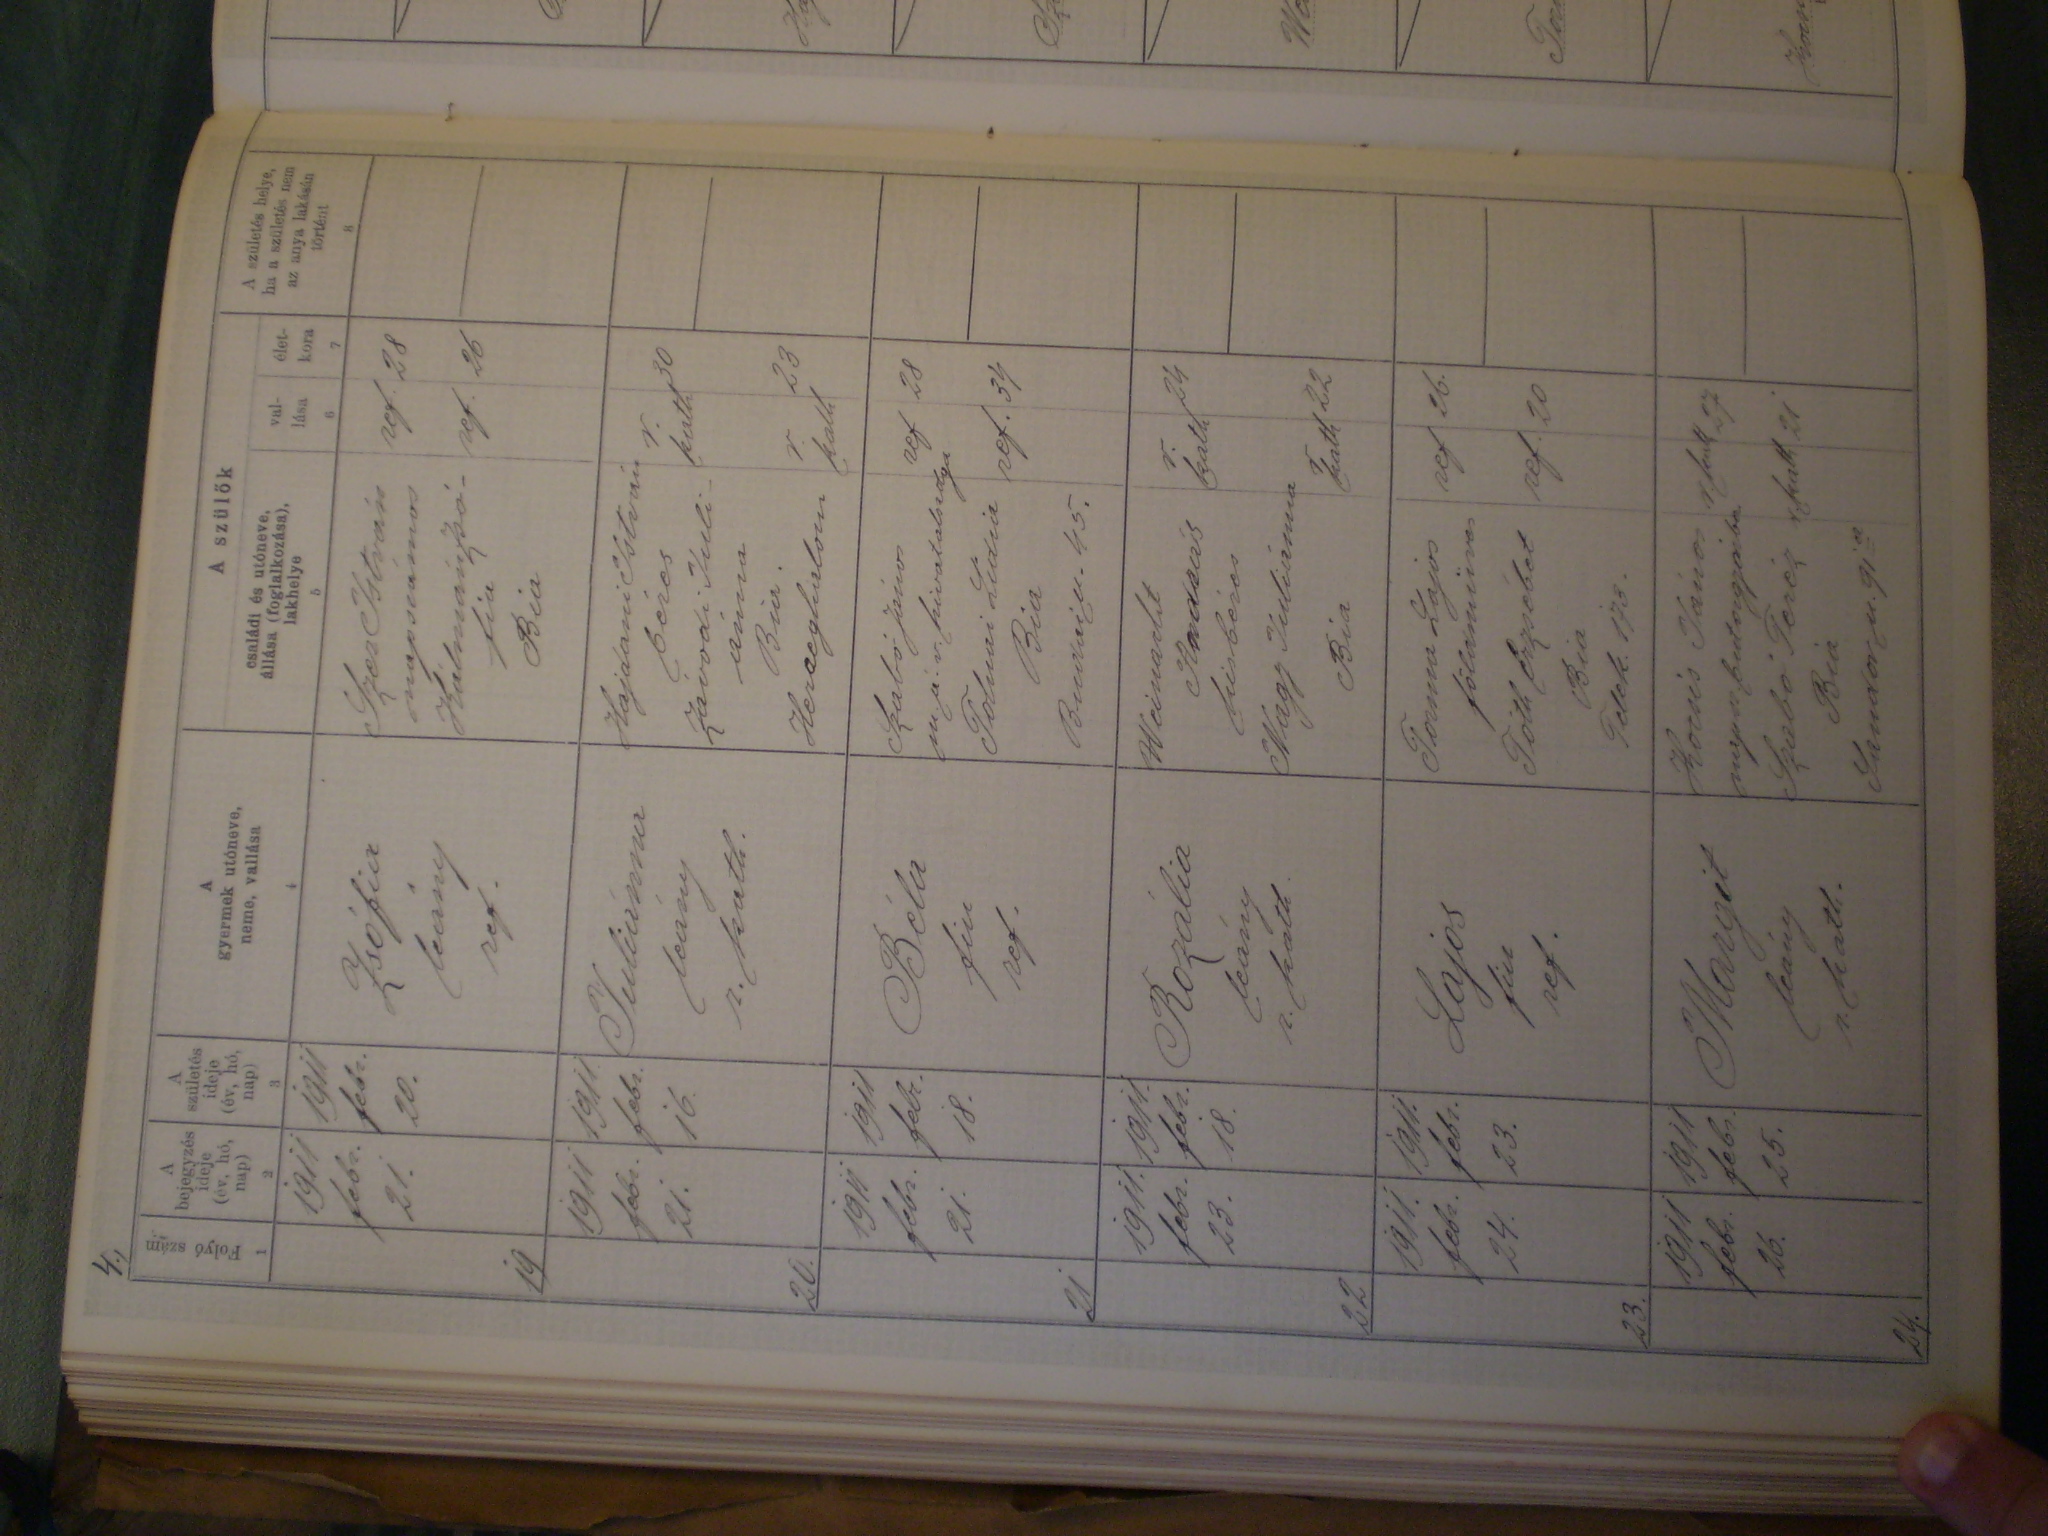 4.
Folyó szám
A bejegyzés ideje (év, hó, nap)
A születés ideje (év, hó, nap)
A gyermek utóneve, neme, vallása
A szülők
családi és utóneve, állása (foglalkozása), lakhelye
val-
lása
élet-
kora
A születés helye,
ha a születés nem
az anya lakásán
történt
1
2
3
4
5
6
7
8
19
1911
febr.
21.
1911
febr.
20.
Zsófia
leány
ref.
István
napszámos
Kálmán Zsó-
fia
Bia
ref. 28
ref. 26
20.
1911
febr.
21.
1911.
febr.
16.
Juliánna
leány
r. kath.
Hajdani István
béres
Závodi Juli-
ánna
Bia.
Herceghalom
r.
kath 30
r.
kath 23
21
1911
febr.
21.
1911
febr.
18.
Béla
fiu
ref.
Szabó János
m.á.v.
Tolnai Lidia
Bia
45.
ref 28
ref. 34
22
1911.
febr.
23.
1911.
febr.
18.
Rozália
leány
r. kath.
Weinhardt
András
kisbéres
Nagy Juliánna
Bia
r.
kath 24
r.
kath 22
23.
1911.
febr.
24.
1911.
febr.
23.
Lajos
fiu
ref.
Torma Lajos
földmives
Tóth Erzsébet
Bia
Telek. 173.
ref 26.
ref. 20
24.
1911
febr.
26.
1911
febr.
25.
Margit
leány
r. kath.
János
Szabó Teréz
Bia
Sándor u. 91
r kath 27
r kath 21